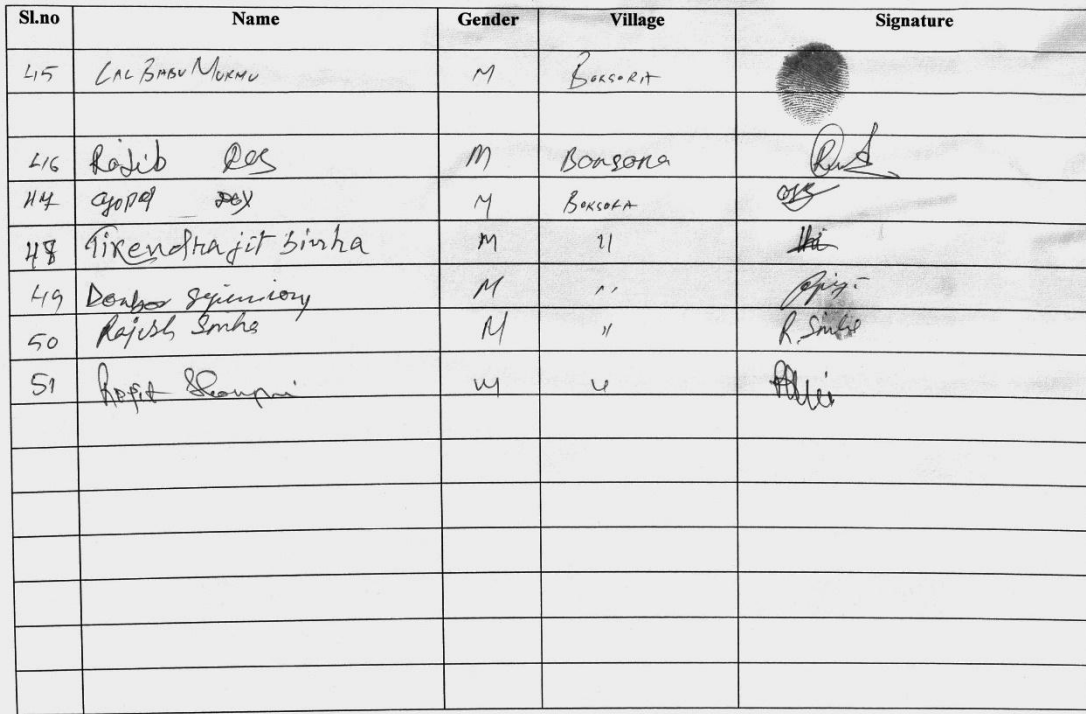 Sl.no Name Gender Village Signature
45 LAL BABU MURMU M BORSORA
46 Rajib Das M Borsora
47 Gopal Dey M BORSORA
48 Tikendrajit Sinha M "
49 M "
50 Rajesh Sinha M " R. Sinha
51 M "